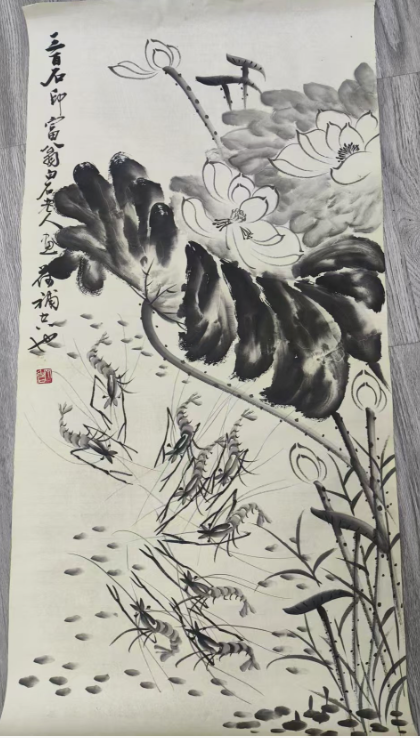 三百石印富翁白石老人画并补空也